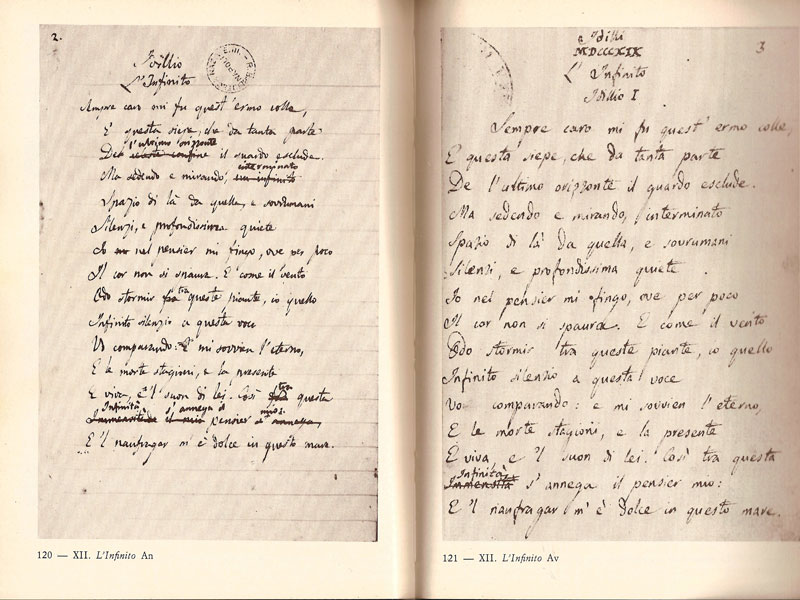 2.
Idillio
L'Infinito
Sempre caro mi fu quest'ermo colle,
E questa siepe, che da tanta parte
l'ultimo orizzonte
De celeste confine il guardo esclude.
interminato
Ma sedendo e mirando, un infinito
Spazio di là da quella, e sovrumani
Silenzi, e profondissima quiete
Io nel pensier mi fingo, ove per poco
Il cor non si spaura. E come il vento
tra
Odo stormir fra queste piante, io quello
Infinito silenzio a questa voce
Vo comparando: E mi sovvien l'eterno,
E le morte stagioni, e la presente
tra
E viva, e 'l suon di lei. Così fra questa
Infinità s'annega il mio:
Immensitade il mio pensier s'annega,
E 'l naufragar m'è dolce in questo mare.
120 — XII. L'Infinito An
3
Idilli
MDCCCXIX
L'Infinito
Idillio I
Sempre caro mi fu quest'ermo colle,
E questa siepe, che da tanta parte
De l'ultimo orizzonte il guardo esclude.
Ma sedendo e mirando, interminato
Spazio di là da quella, e sovrumani
Silenzi, e profondissima quiete
Io nel pensier mi fingo, ove per poco
Il cor non si spaura. E come il vento
Odo stormir tra queste piante, io quello
Infinito silenzio a questa voce
Vo comparando: e mi sovvien l'eterno,
E le morte stagioni, e la presente
E viva, e 'l suon di lei. Così tra questa
Infinità
Immensità s'annega il pensier mio:
E 'l naufragar m'è dolce in questo mare.
121 — XII. L'Infinito Av